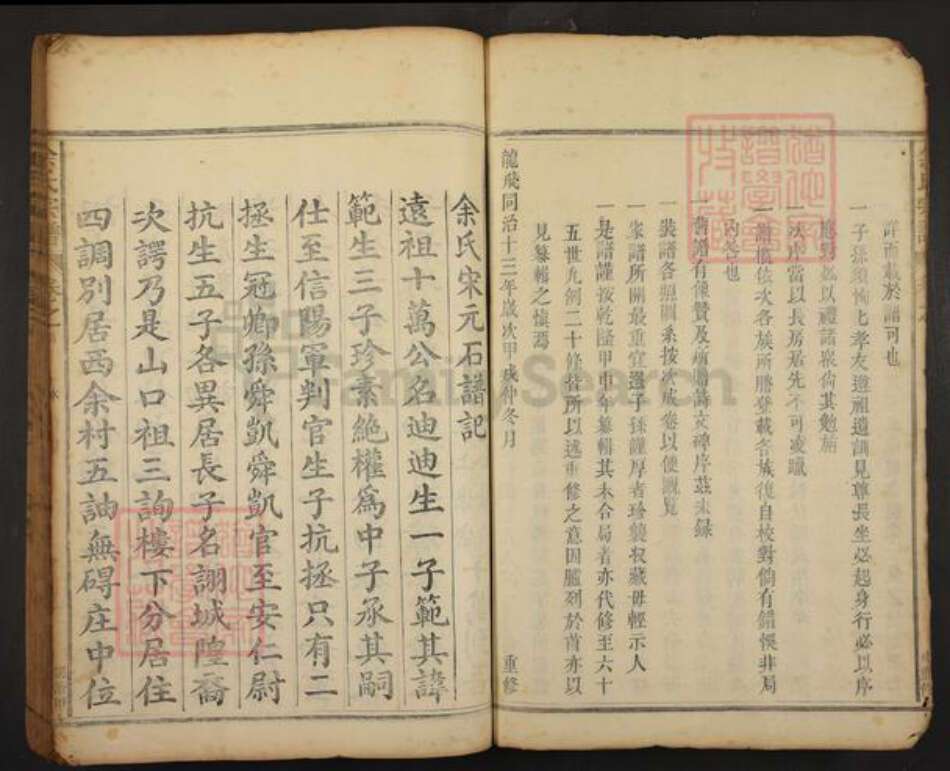 詳而載於譜可也
一子孫須悌上孝友遵祖遺訓見尊長坐必起身行必以序
應對必以禮諸衆倘其勉旃
一次序當以長房居先不可或亂
一譜俱依次各族所謄登載各族復自校對倘有錯悞非局
內咎也
一舊譜有像贊及贈詩文碑序茲未錄
一裝譜各照圖系按次成卷以便觀覽
一家譜所關最重宜選子孫謹厚者珍襲收藏毋輕示人
一是譜謹按乾隆甲申年纂輯其未合局者亦代修至六十
五世凡例二十條皆所以述重修之意因臚列於首亦以
見纂輯之慎焉
龍飛同治十三年歲次甲戌仲冬月 重修
余氏宋元石譜記
遠祖十萬公名迪迪生一子範其諱
範生三子珍素絶權爲中子承其嗣
仕至信陽軍判官生子抗拯只有二
拯生冠卿孫舜凱舜凱官至安仁尉
抗生五子各異居長子名詡城隍裔
次諤乃是山口祖三詢樓下分居住
四調別居西余村五詘無碍庄中位
FamilySearch